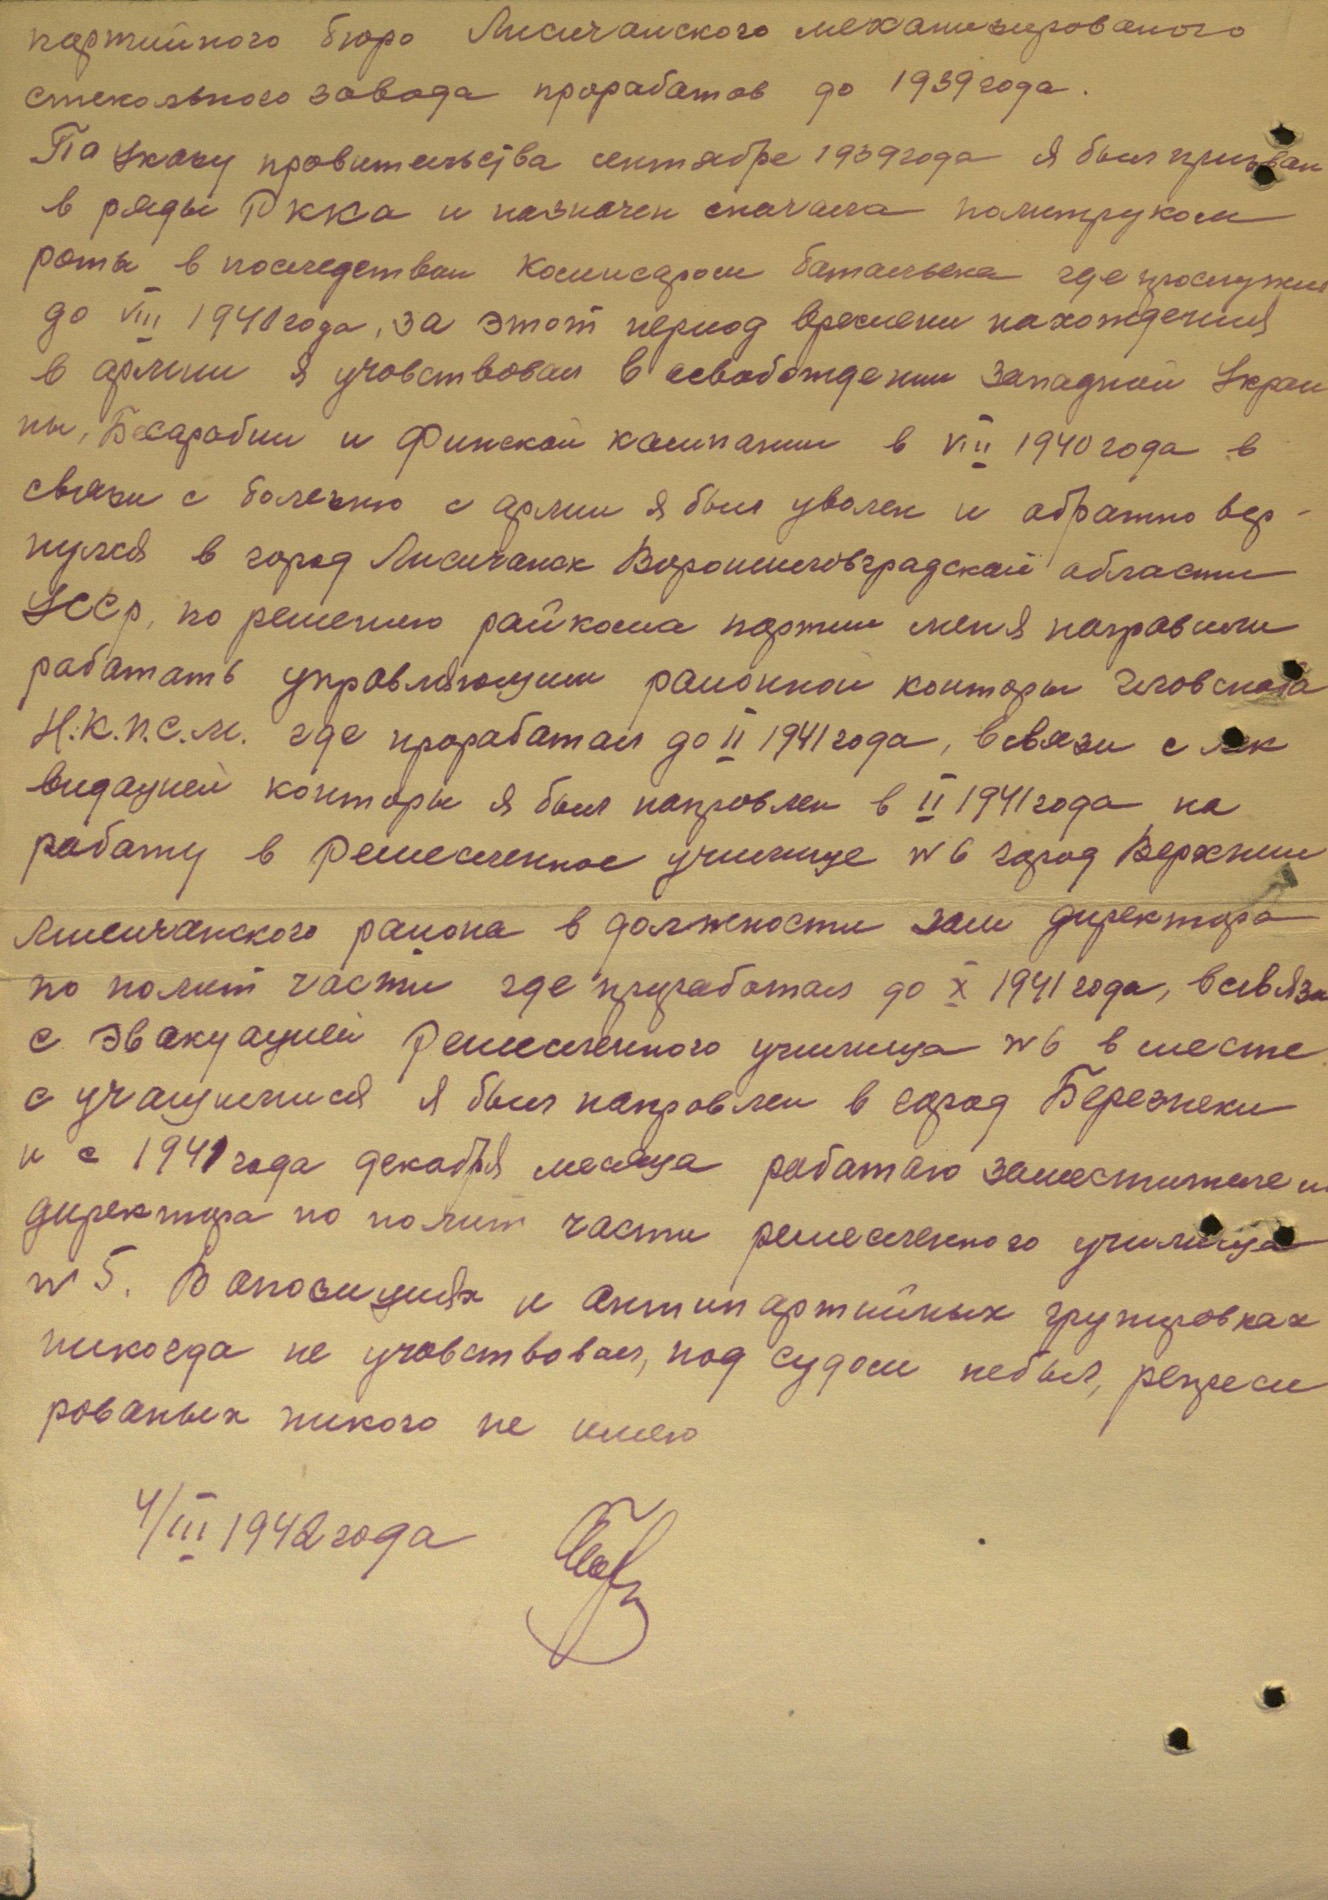 партийного бюро Лисичанского механизированого
стекольного завода проработав до 1939 года.
Па Указу правительства сентябре 1939 года я был призван
в ряды РККА и назначен сначала политруком
роты в последствии комисаром батальена где прослужил
до VIII 1940 года, за этот период времени нахождения
в армии я учавствовал в асвабождении западной Украи
ны, Бесарабии и Финской кампании в VIII 1940 года в
связи с болезню с армии я был уволен и абратно вер-
нулся в город Лисичанск Ворошиловградской области
УССР, по решению райкома партии меня направили
работать управляющим районной конторы
Н.К.П.С.М. где проработал до II 1941 года, всвязи с лик
видацией конторы я был направлен в II 1941 года на
работу в Ремесленное училище № 6 город Верхнии
Лисичанского раиона в должности зам директора
по полит части где проработал до X 1941 года, всвязи
с эвакуацией Ремесленного училища № 6 в месте
с учащимися я был направлен в город Березнеки
и с 1941 года декабря месяца работаю заместителем
директора по полит части ремесленного училища
№ 5. В апозициях и антипартийных групировках
никогда не учавствовал, под судом небыл, репреси
рованых никого не имею
4/III 1942 года